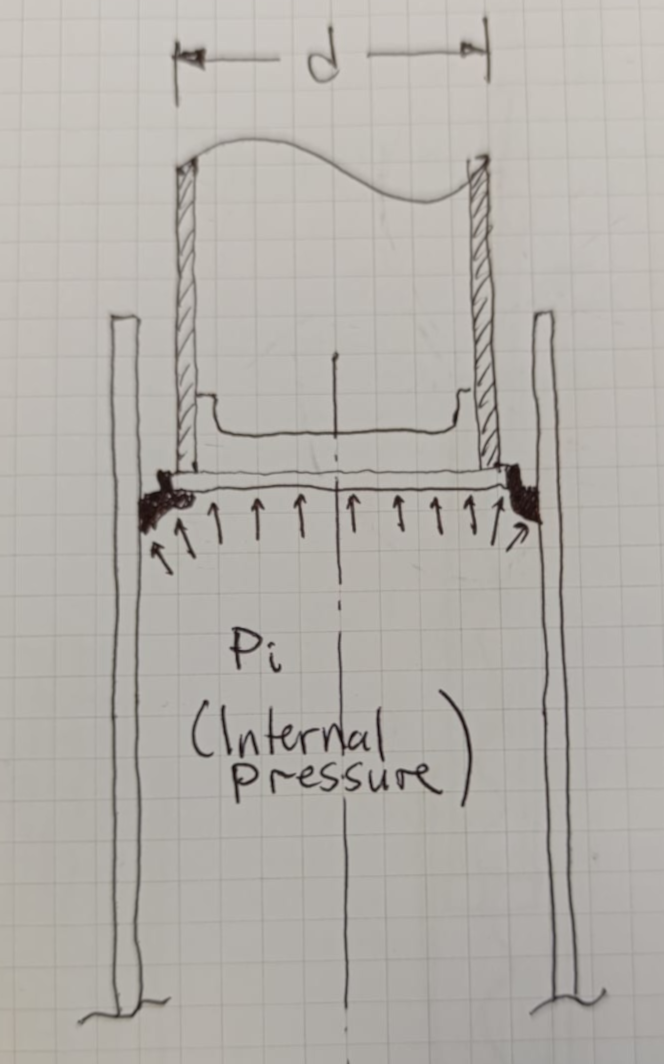 d
Pi
(Internal
pressure)